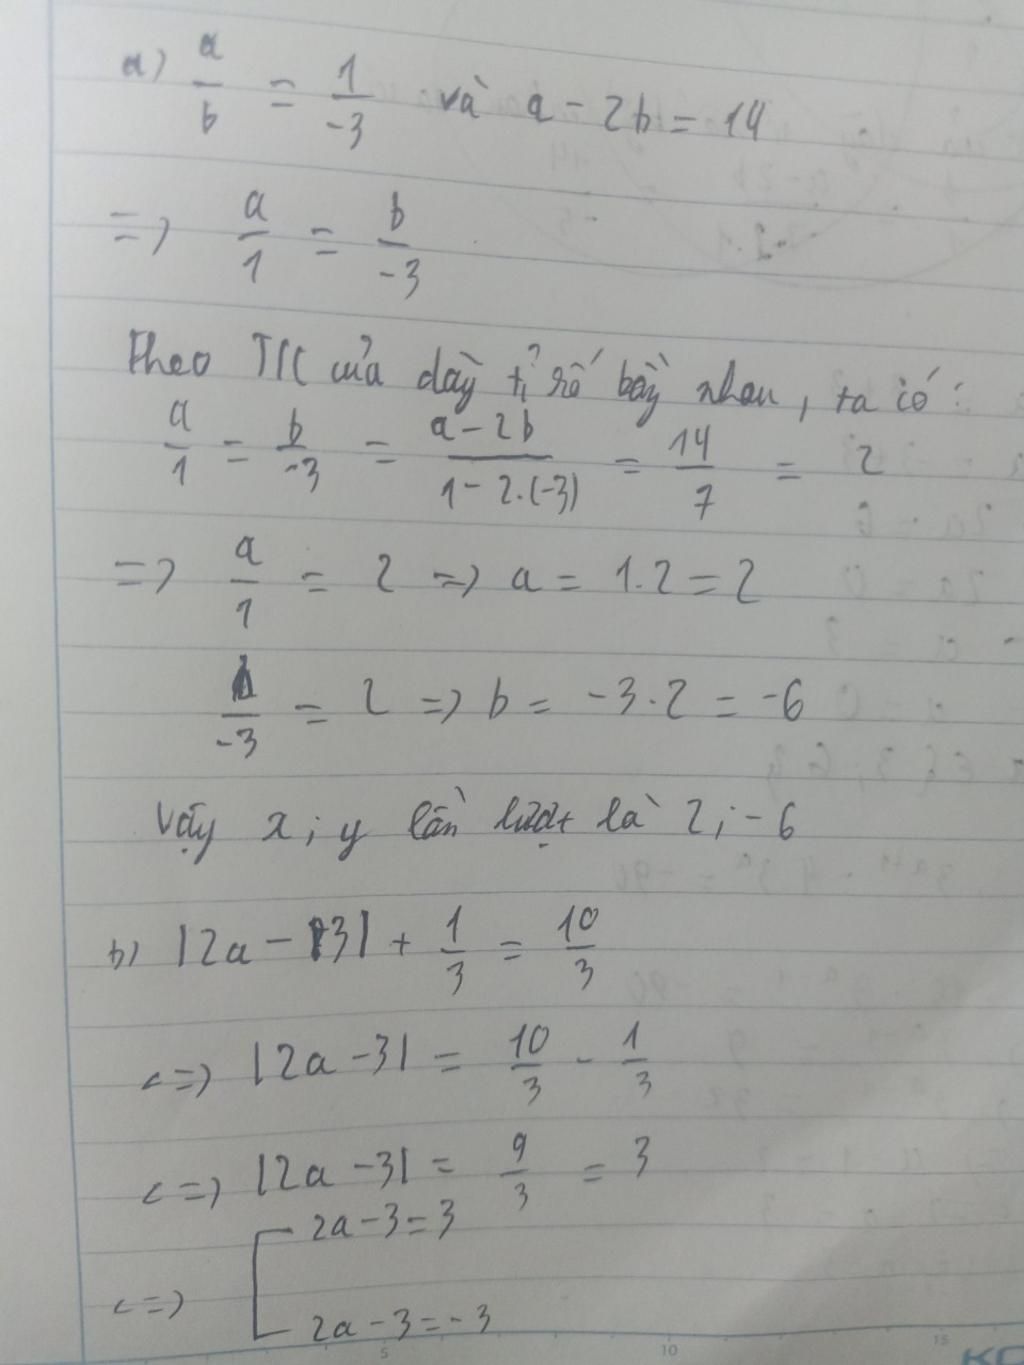 a) a/b = 1/-3 và a - 2b = 14
=> a/1 = b/-3
Theo T/C của dãy tỉ số bằng nhau, ta có:
a/1 = b/-3 = (a - 2b)/(1 - 2.(-3)) = 14/7 = 2
=> a/1 = 2 => a = 1.2 = 2
b/-3 = 2 => b = -3.2 = -6
Vậy x; y lần lượt là 2; -6
b) |2a - 3| + 1/3 = 10/3
<=> |2a - 3| = 10/3 - 1/3
<=> |2a - 3| = 9/3 = 3
2a - 3 = 3
<=> [
2a - 3 = -3
5 10 15 KO